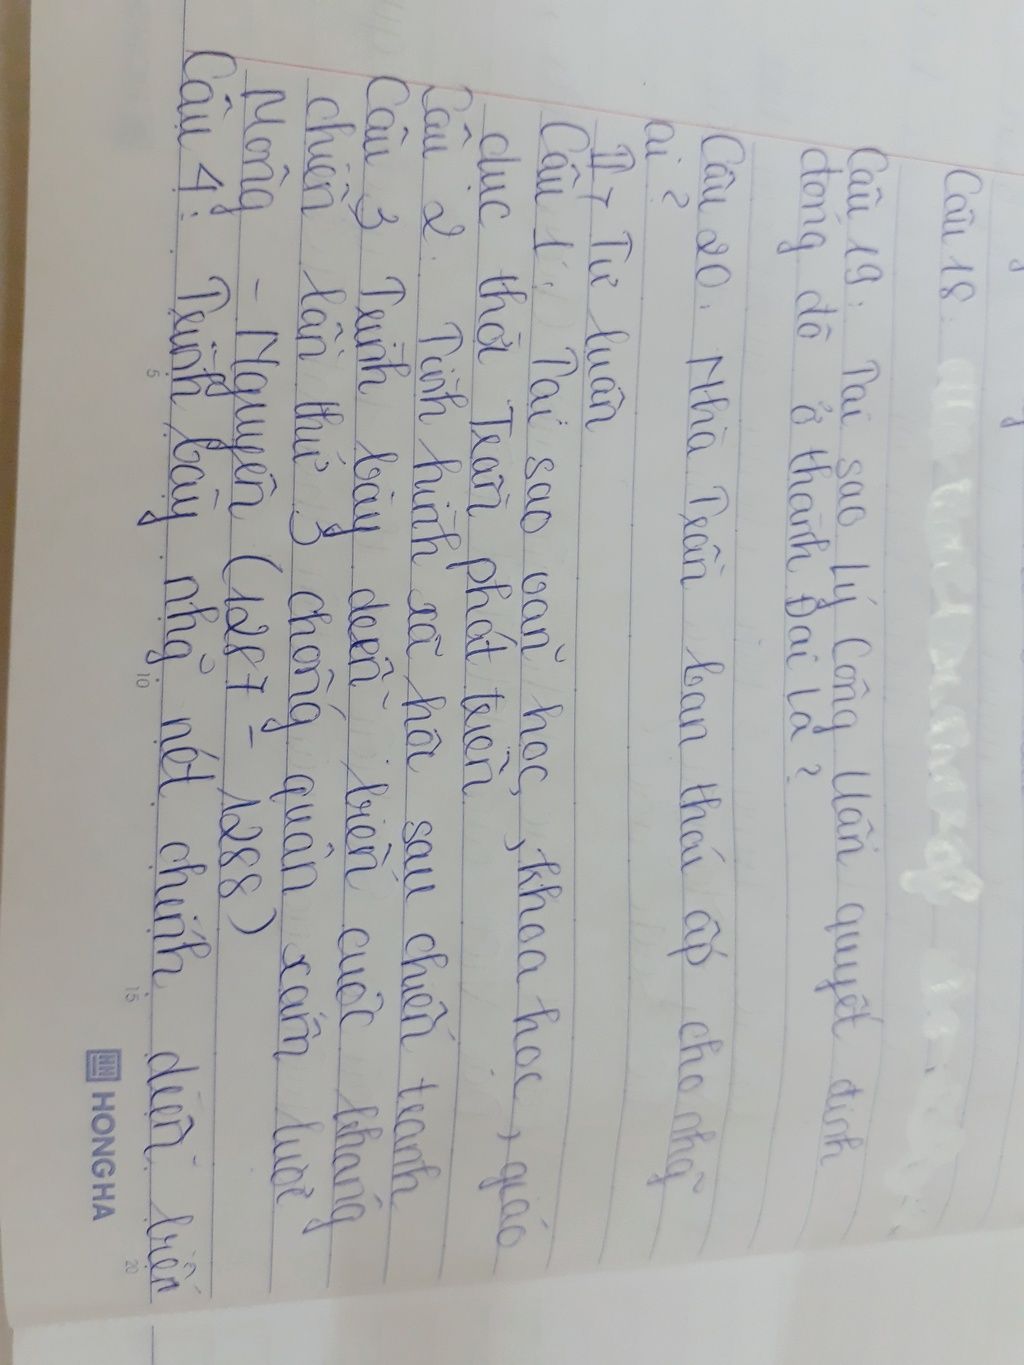 Câu 18.
Câu 19: Tại sao Lý Công Uẩn quyết định
đóng đô ở thành Đại La?
Câu 20. Nhà Trần ban thái ấp cho nhg~
ai?
II, Tự luận
Câu 1: Tại sao văn học, khoa học, giáo
dục thời Trần phát triển
Câu 2. Tình hình xã hội sau chiến tranh
Câu 3 Trình bày diễn biến cuộc kháng
chiến lần thứ 3 chống quân xâm lược
Mông - Nguyên (1287 - 1288)
Câu 4: Trình bày nhg~ nét chính diễn biến
5
10
15
20
HONG HA